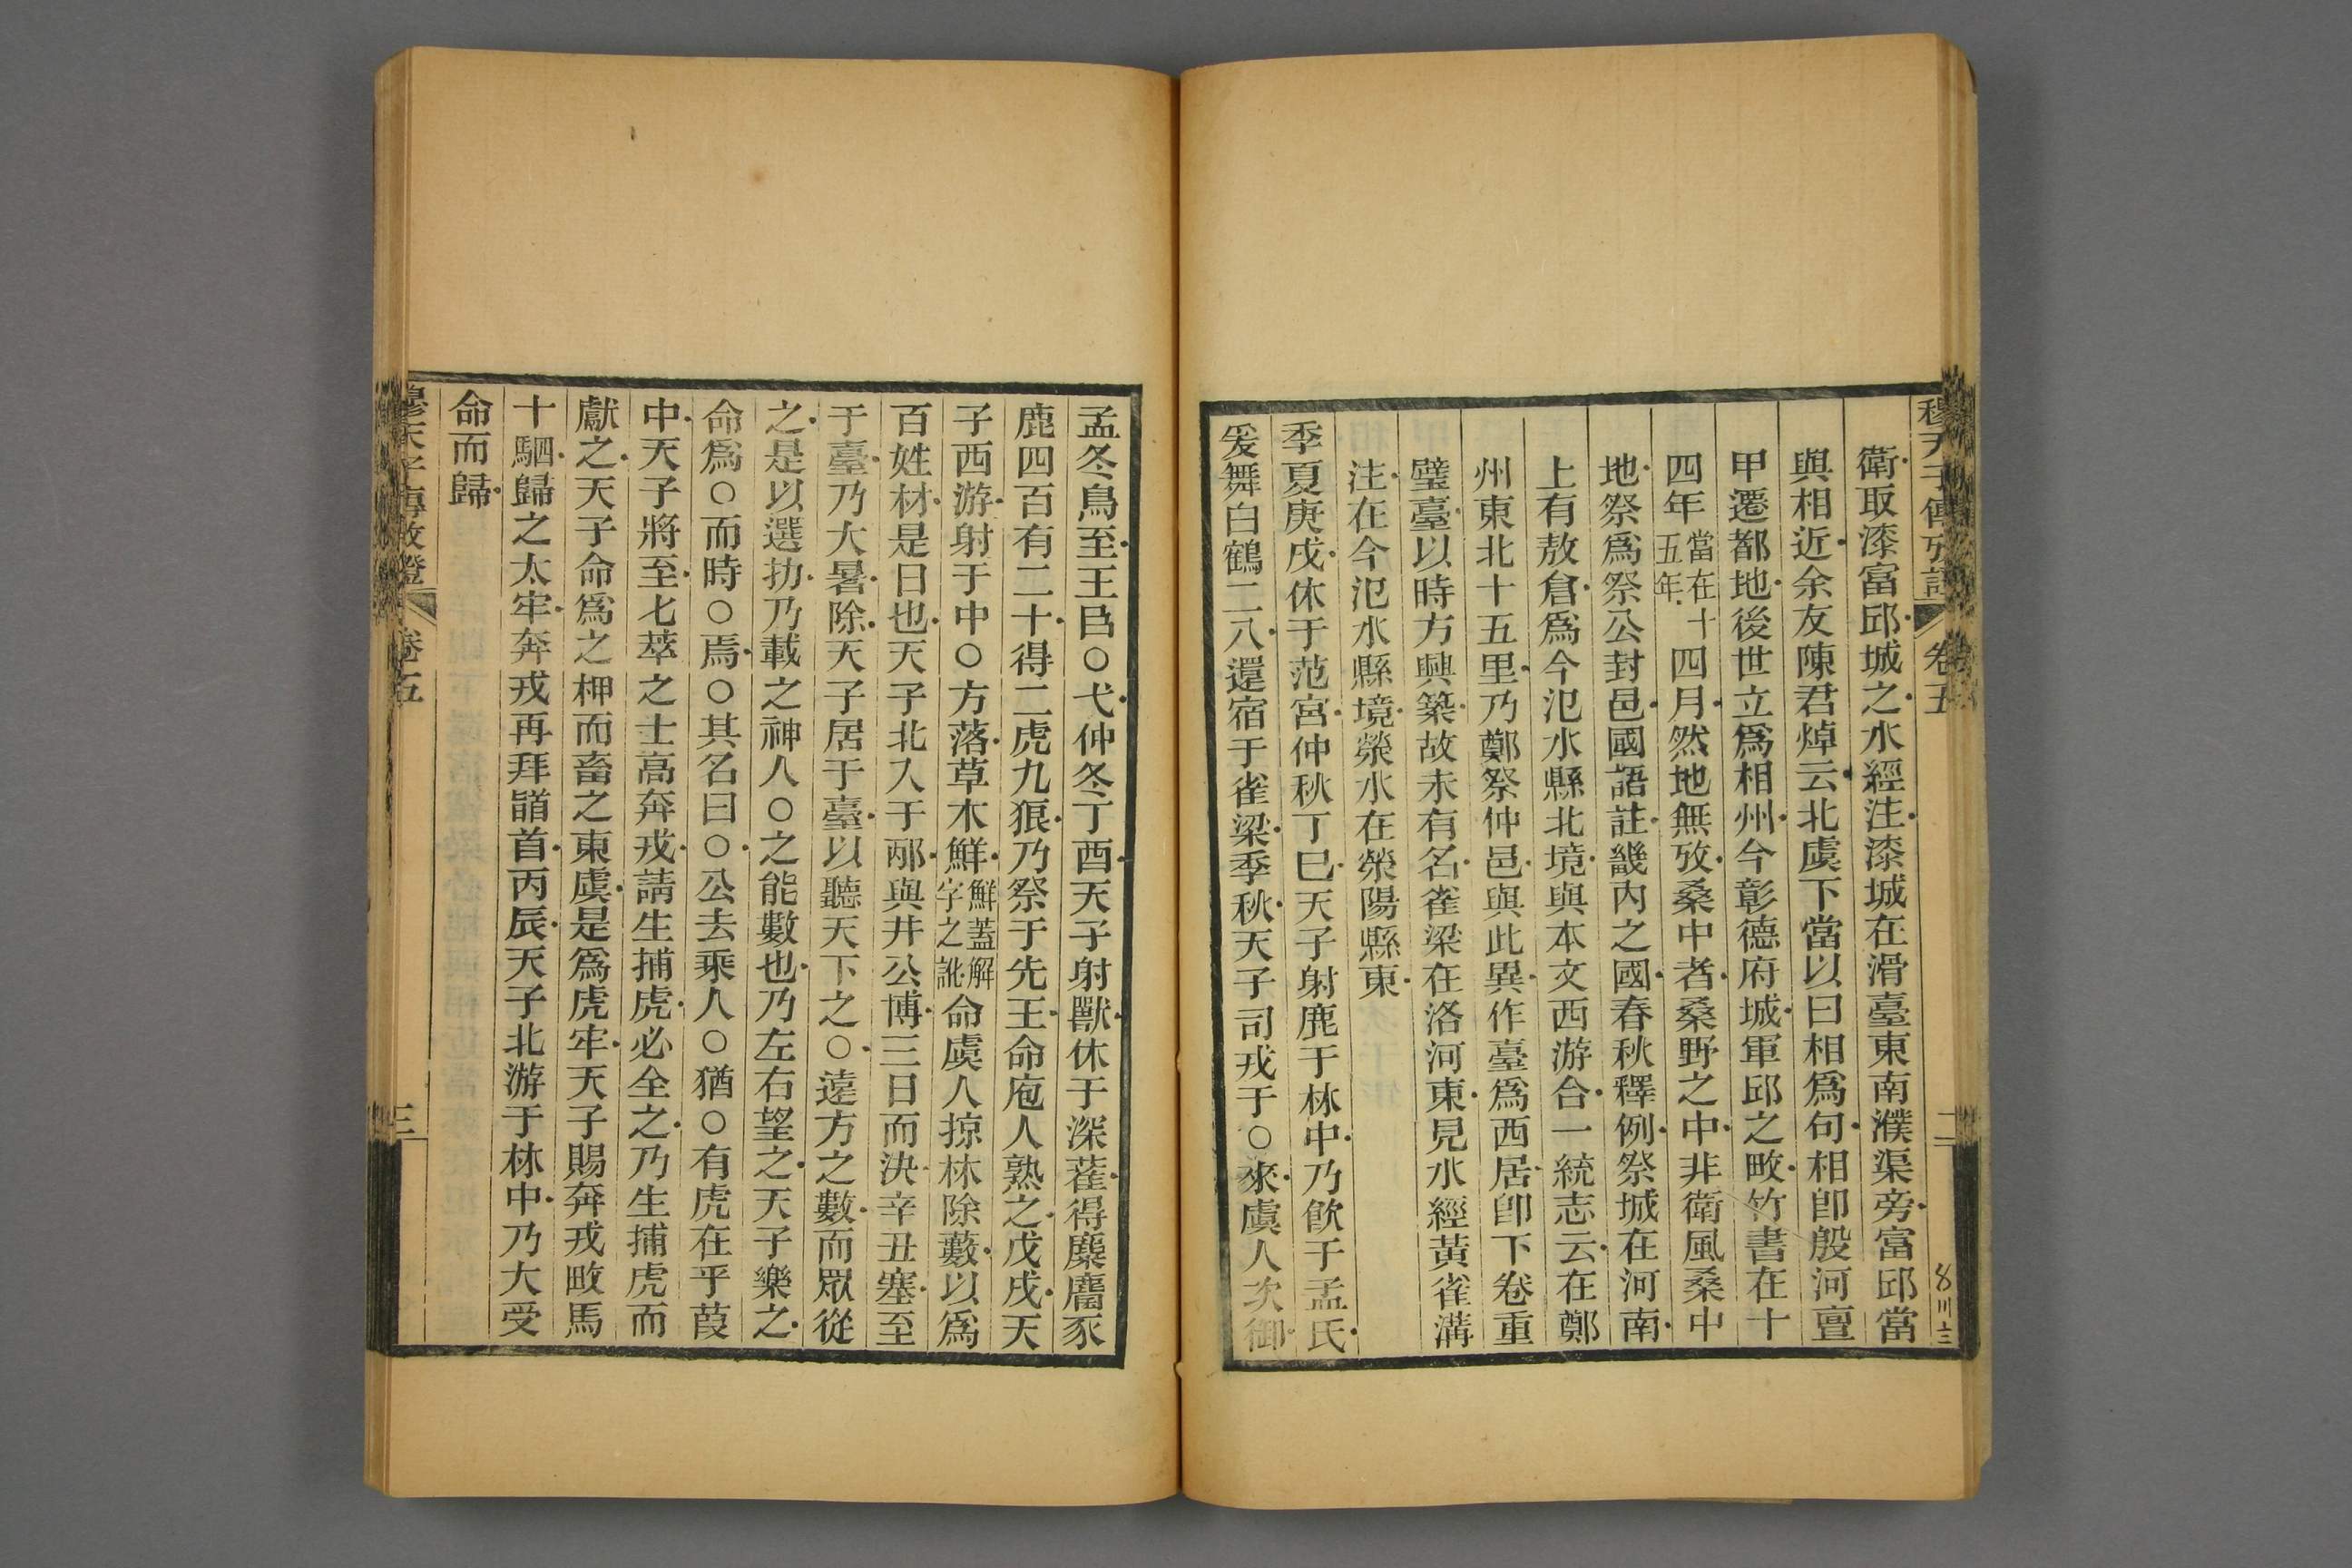 穆天子傳攷證 卷五 二
衛取漆富邱城之水經注漆城在滑臺東南濮渠旁富邱當
與相近余友陳君焯云北虞下當以曰相爲句相卽殷河亶
甲遷都地後世立爲相州今彰德府城軍邱之畋竹書在十
四年當在十五年四月然地無攷桑中者桑野之中非衛風桑中
地祭爲祭公封邑國語註畿內之國春秋釋例祭城在河南
上有敖倉爲今汜水縣北境與本文西游合一統志云在鄭
州東北十五里乃鄭祭仲邑與此異作臺爲西居卽下卷重
璧臺以時方興築故未有名雀梁在洛河東見水經黃雀溝
注在今汜水縣境滎水在滎陽縣東
季夏庚戌休于范宮仲秋丁巳天子射鹿于林中乃飮于孟氏
爰舞白鶴二八還宿于雀梁季秋天子司戎于○來虞人次御
孟冬鳥至王𦣞○弋仲冬丁酉天子射獸休于深雚得麋麕豕
鹿四百有二十得二虎九狼乃祭于先王命庖人熟之戊戌天
子西游射于中○方落草木鮮鮮蓋解字之訛命虞人掠林除藪以爲
百姓材是日也天子北入于邴與井公博三日而決辛丑塞至
于臺乃大暑除天子居于臺以聽天下之○遠方之數而眾從
之是以選扐乃載之神人○之能數也乃左右望之天子樂之
命爲○而時○焉○其名曰○公去乘人○猶○有虎在乎葭
中天子將至七萃之士高奔戎請生捕虎必全之乃生捕虎而
獻之天子命爲之柙而畜之東虞是爲虎牢天子賜奔戎畋馬
十駟歸之太牢奔戎再拜䭫首丙辰天子北游于林中乃大受
命而歸
穆天子傳攷證 卷五 三